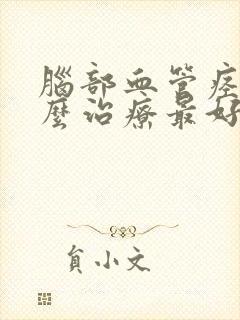 腦部血管痙
麼治療最好
貟小文